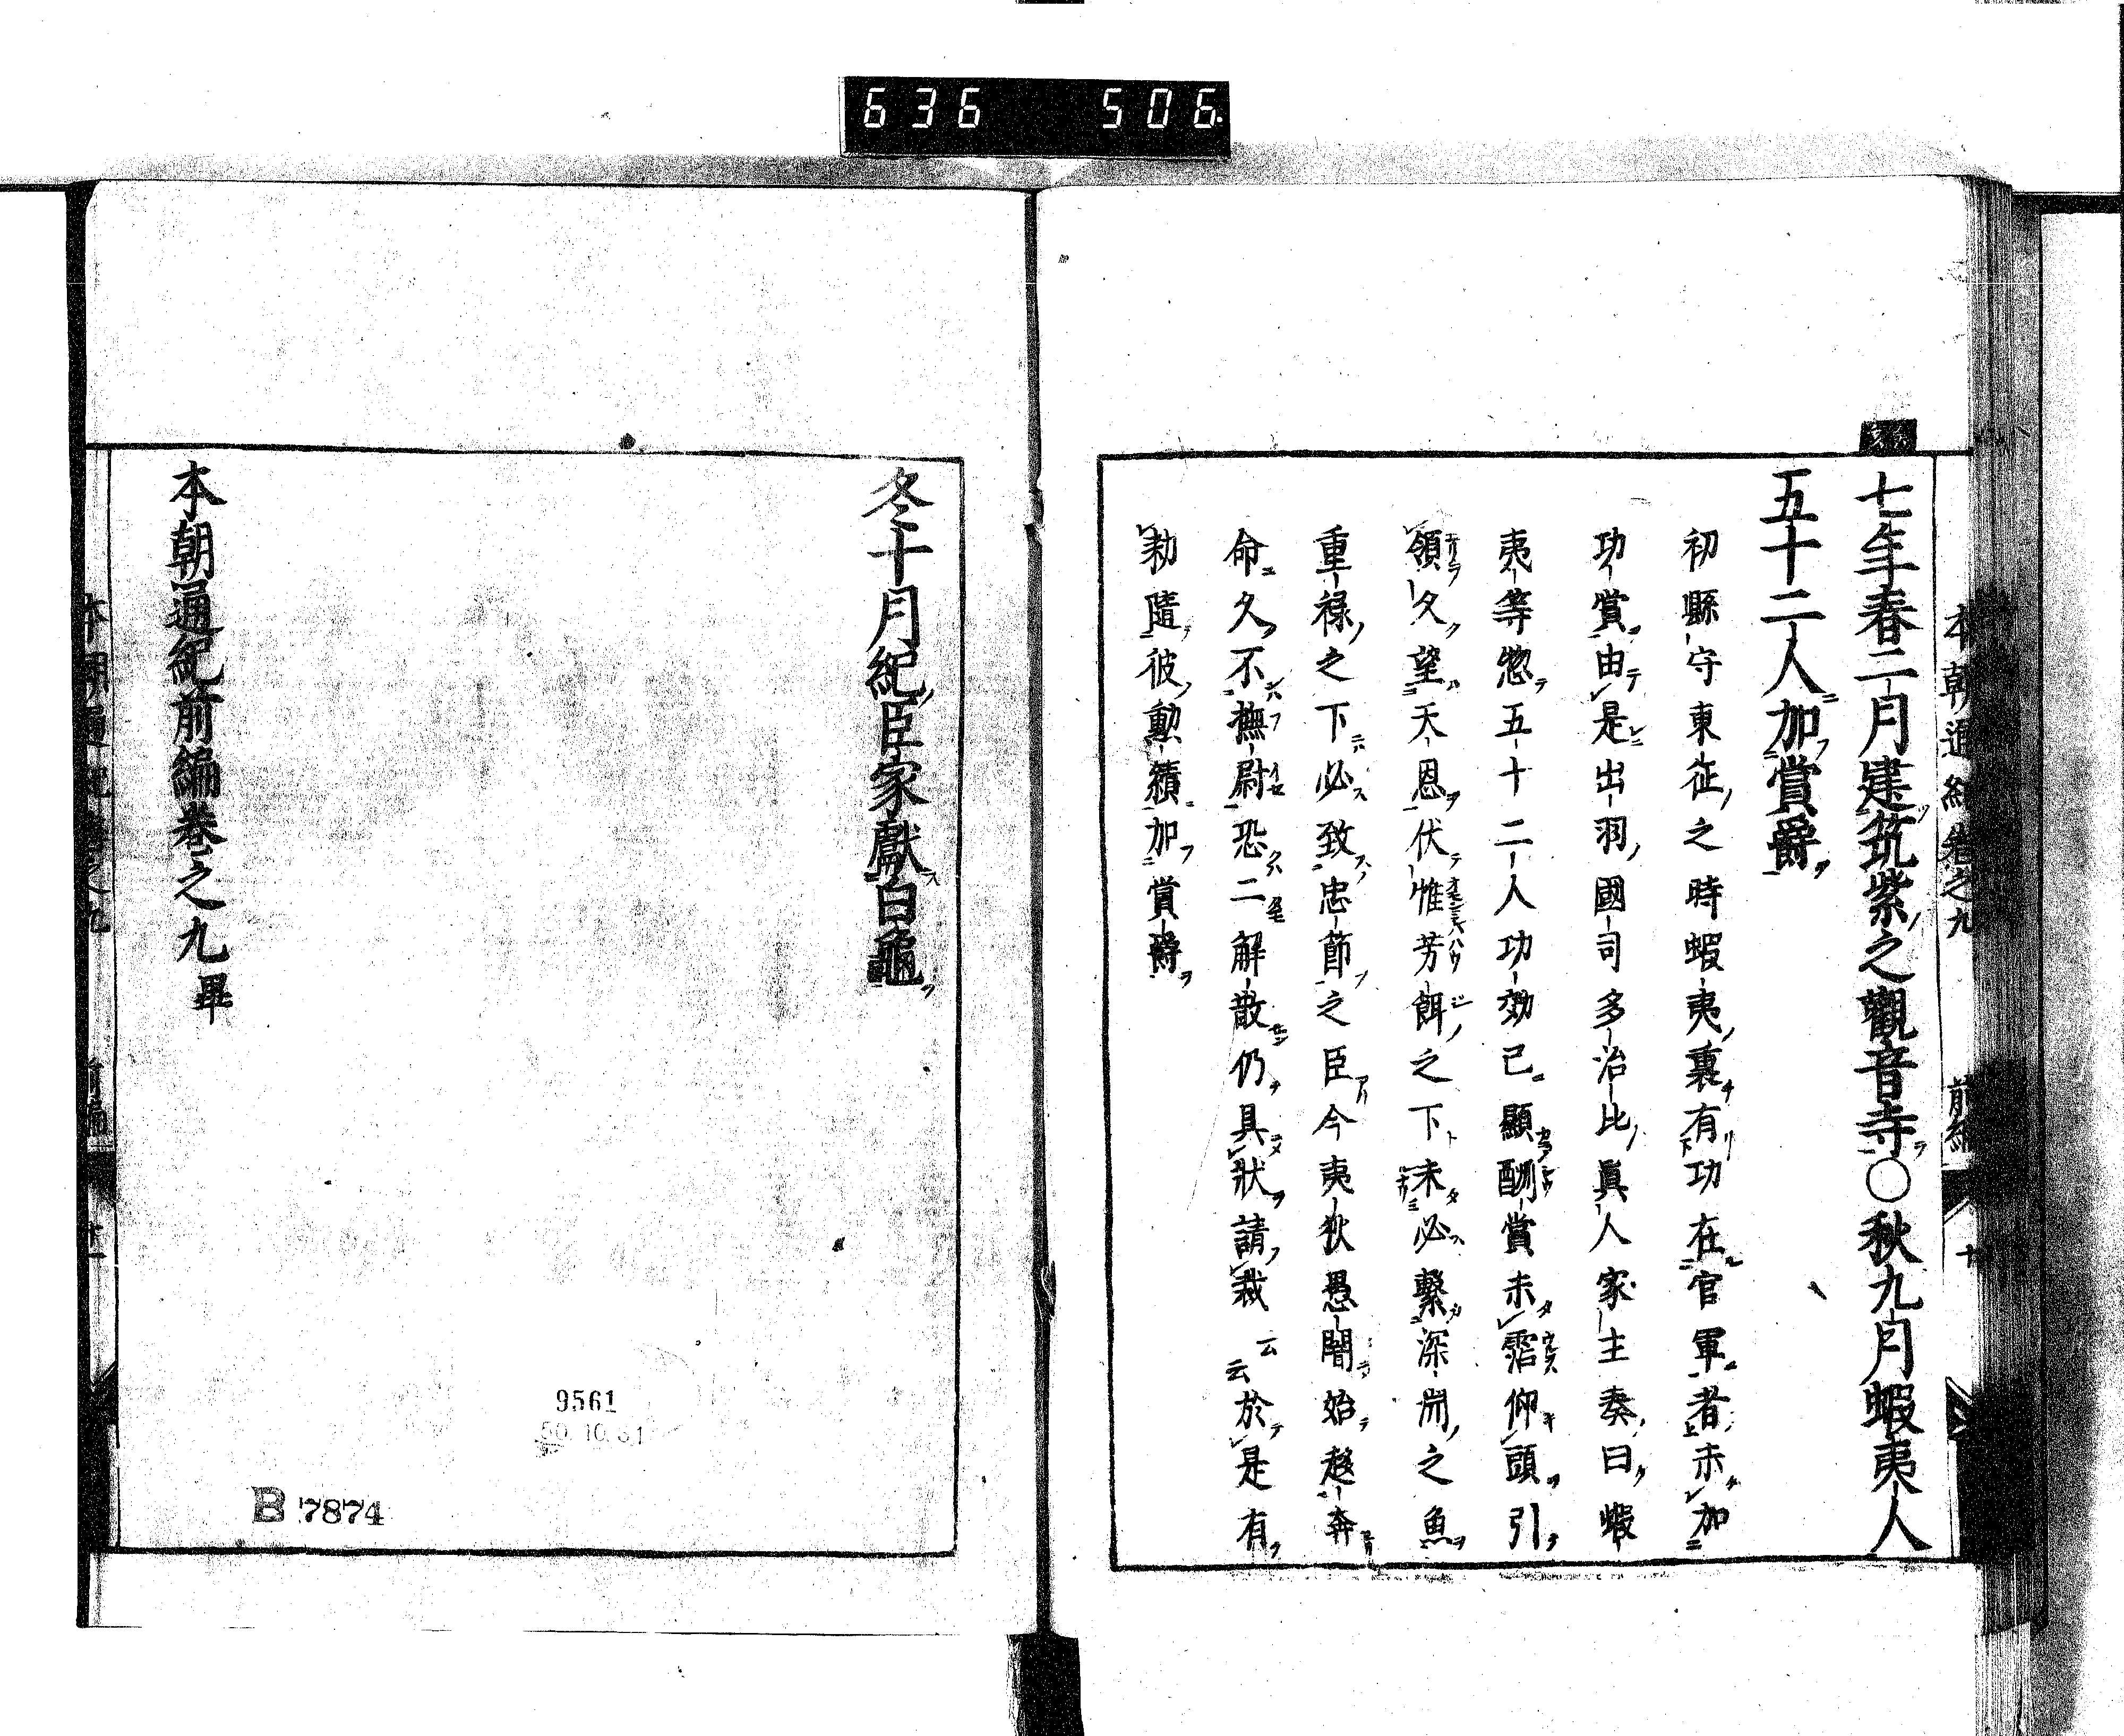 636 506
本朝通紀卷之九 前編 十
七年春二月建筑紫之觀音寺○秋九月蝦夷人
五十二人加賞爵
初縣守東征之時蝦夷裏有功在官軍者未加
功賞由是出羽國司多治比眞人家主奏曰蝦
夷等惣五十二人功効已顯酬賞未霑仰頭引
領久望天恩伏惟芳餌之下未必繫深淵之魚
重禄之下必致忠節之臣今夷狄愚闇始趍奔
命久不撫尉恐二解散仍具狀請裁云云於是有
勅隨彼勲績加賞爵
冬十月紀臣家獻白龜
本朝通紀前編卷之九畢
9561
B 7874